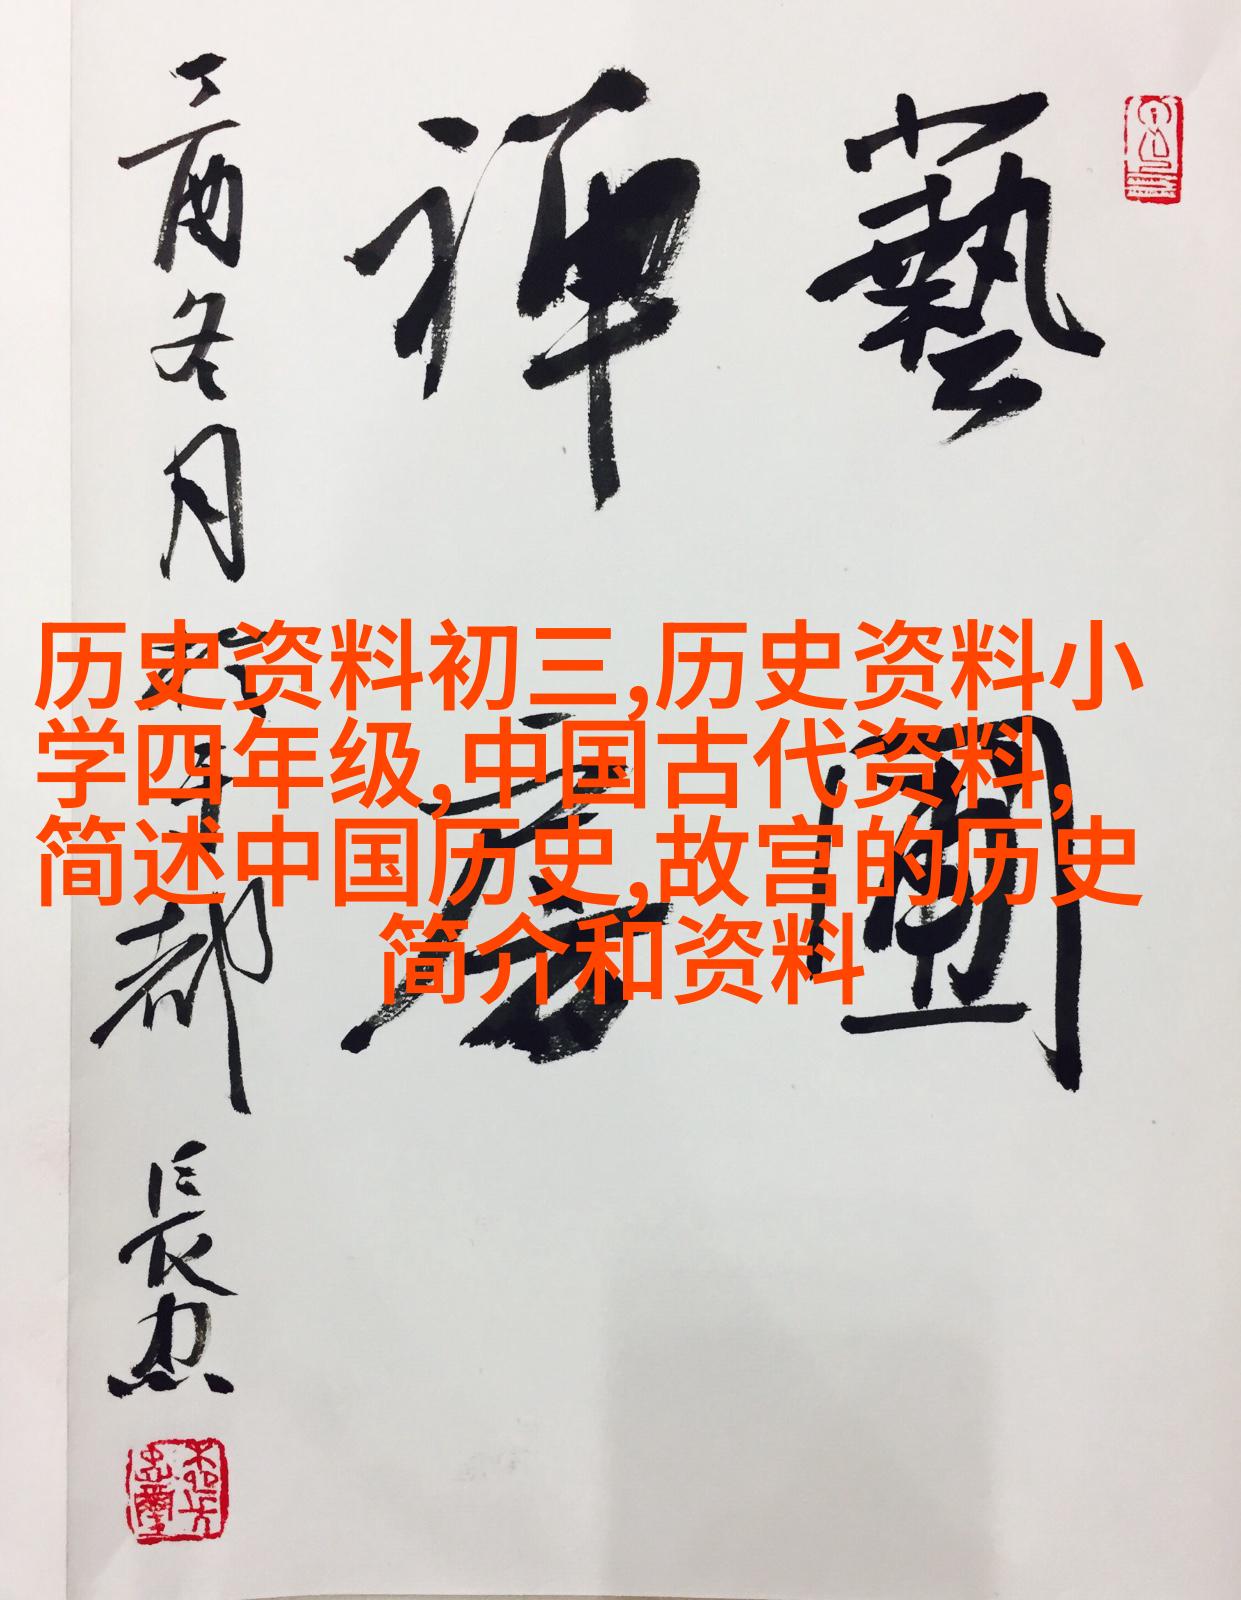 藝圃
禪房
丁酉冬月於京都
長忠
历史资料初三,历史资料小
学四年级,中国古代资料,
简述中国历史,故宫的历史
简介和资料